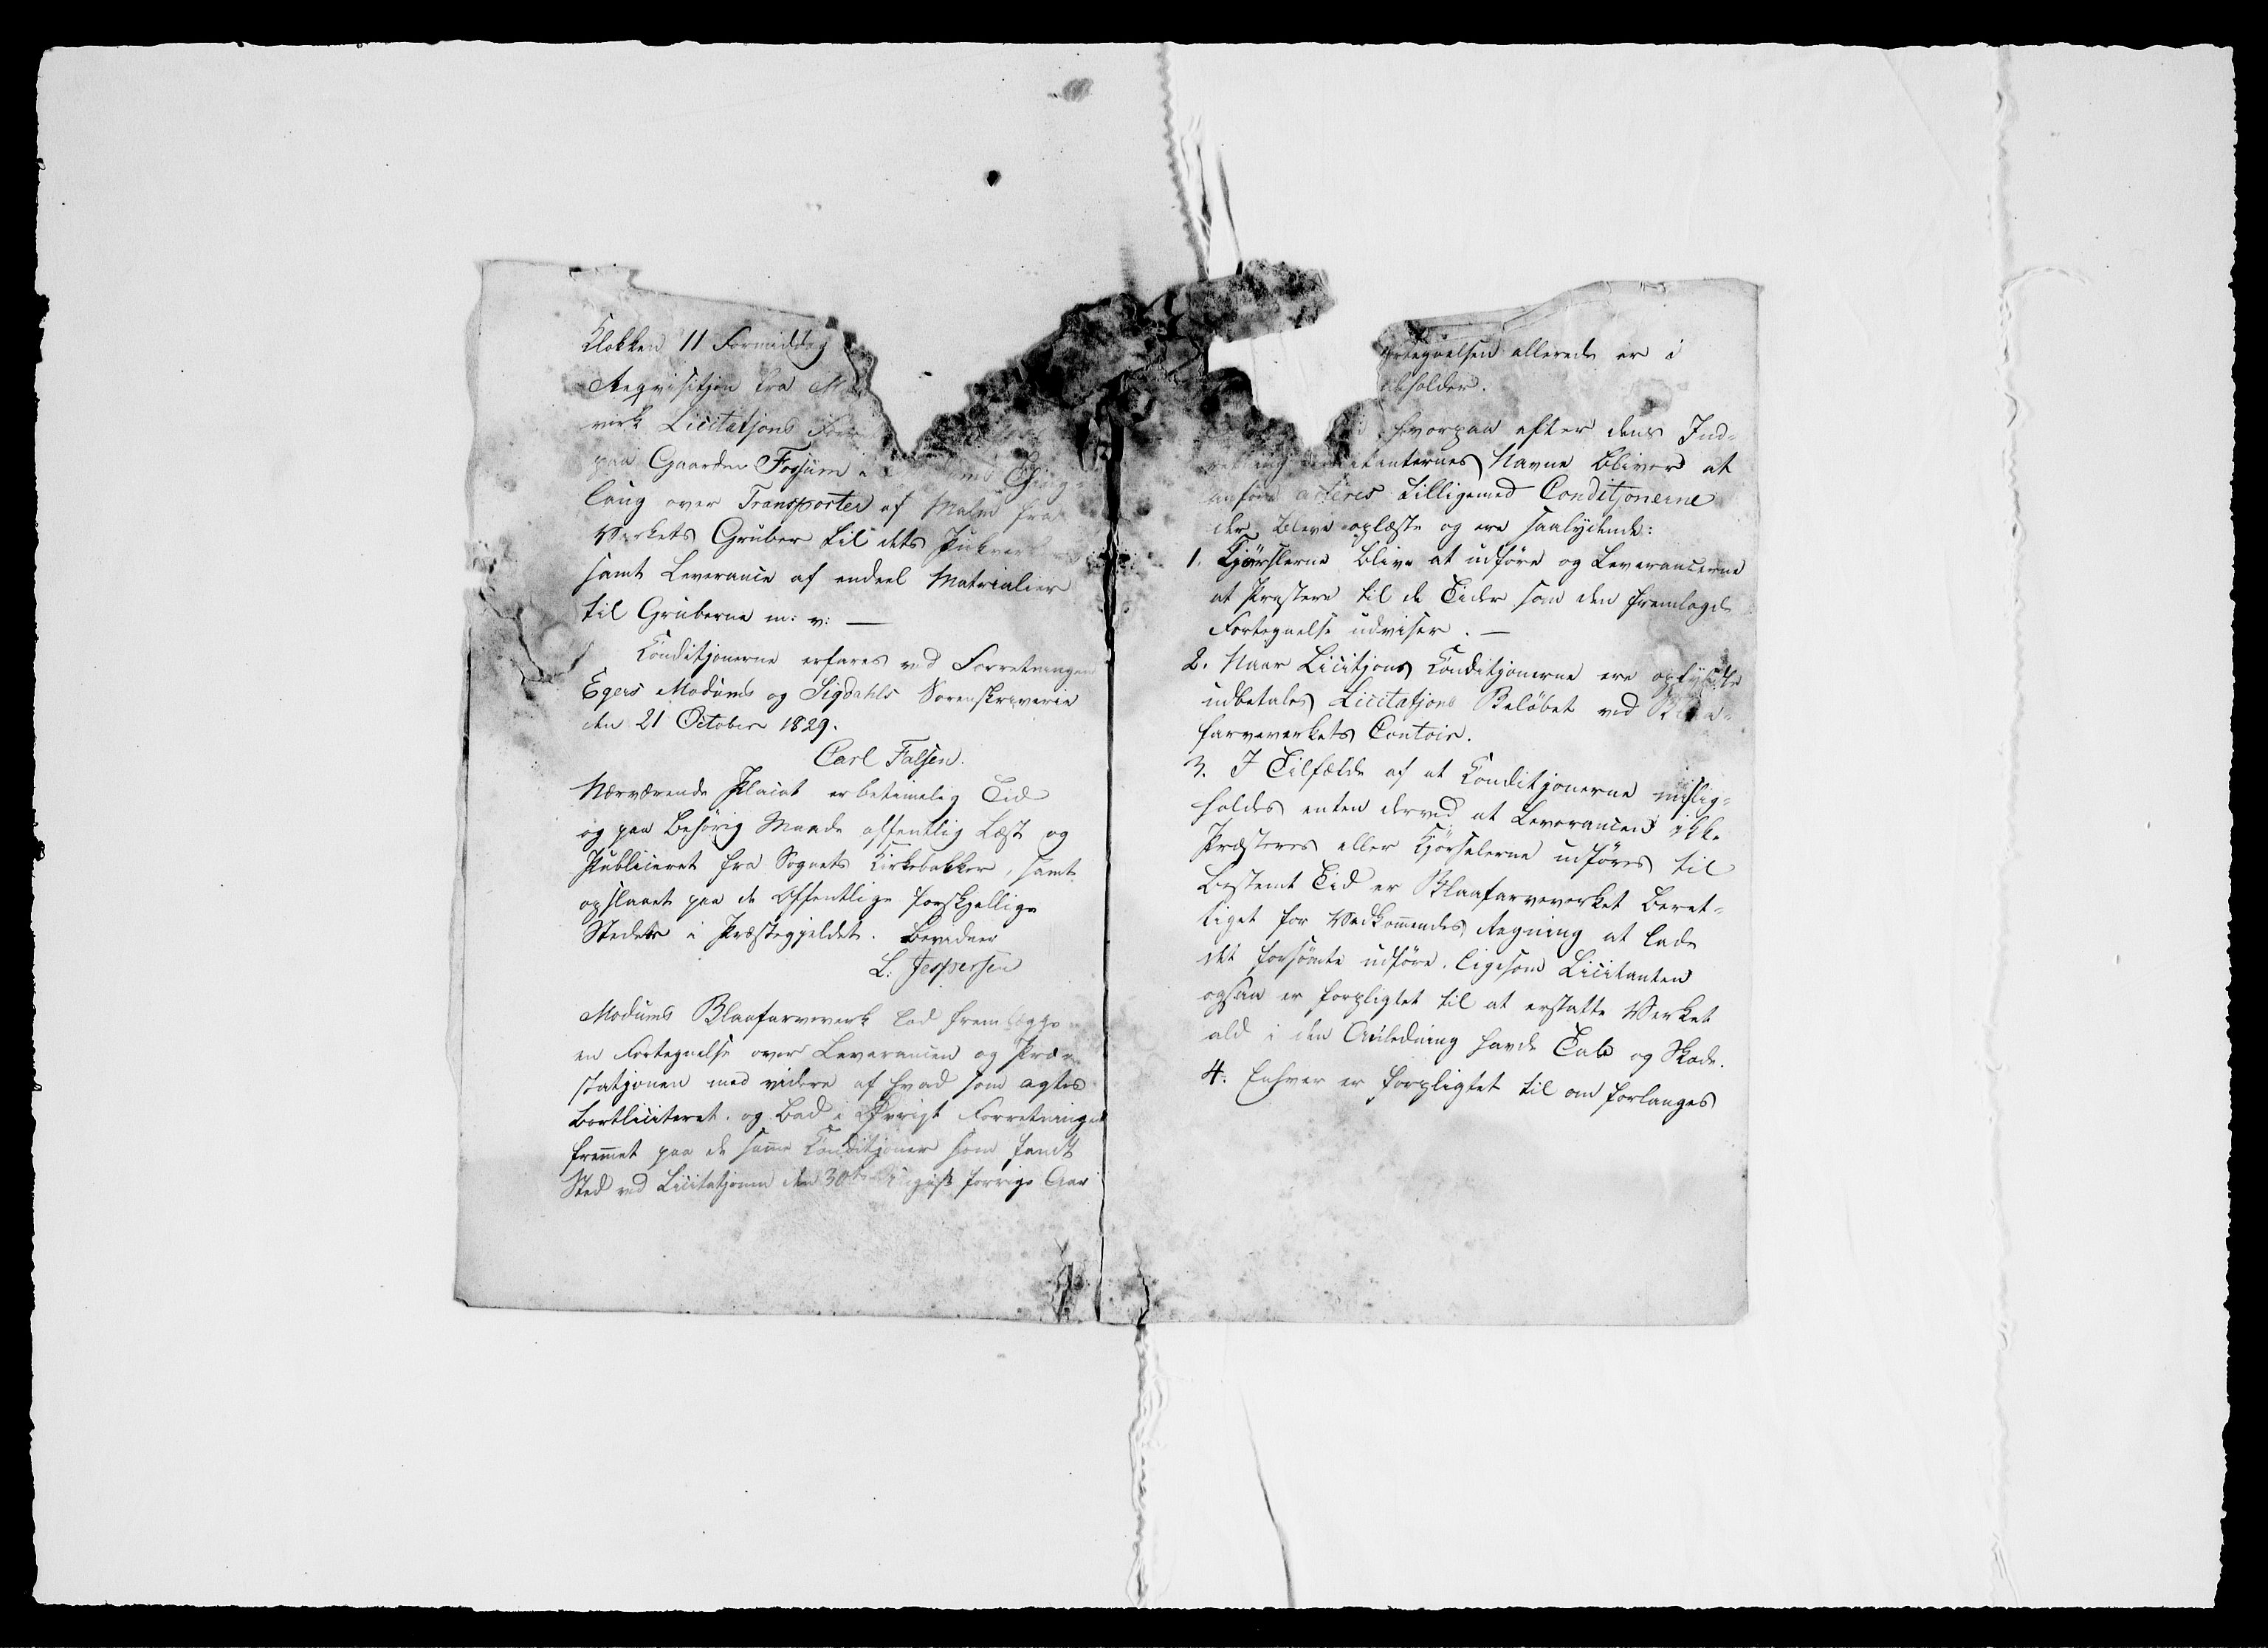 Klokken 11 Formiddag
Reqvisitjon fra M
verk Licitatjons For
paa Gaarden Fossum i
laug over Transporter af Malm fra
Verkets Gruber til dets Pukverker
samt Leverance af endeel Matrialier
til Gruberne m: v: —
Conditjonerne erfares ved Forretningen
Egers Modums og Sigdahls Sorenskriverie
den 21 October 1829.
Carl Falsen.
Nærværende Placat er betimelig Tid
og paa behørig Maade offentlig Læst og
Publiceret fra Sognets Kirkebakker, samt
opslaaet paa de offentlige forskjellige
Steder i Præstegjeldet. Bevidner
L: Jespersen
Modums Blaafarveverk lod fremlægge
en Fortegnelse over Leverancen og Præ-
statjonen med videre af hvad som agtes
bortliciteret. og bad i Øvrigt Forretningen
fremmet paa de samme Conditjoner som fandt
Sted ved Licitatjonen den 30te August forrige Aar
rtegnelsen allerede er i
eholder.
hvorpaa efter dens Ind-
Licitanternes Navne bliver at
anføre acteres tilligemed Conditjonerne
der bleve oplæste og ere saalydende:
1. Kjørslerne blive at udføre og Leverancerne
at Præstere til de Tider som den fremlagde
Fortegnelse udviser. —
2. Naar Licitjons Conditjonerne ere opfyldte
udbetales Licitatjons Beløbet ved Blaa-
farveverkets Contoir.
3. I Tilfælde af at Conditjonerne mislig-
holdes enten derved at Leverancen ikke
Præsteres eller Kjørselerne udføres til
bestemt Tid er Blaafarveverket beret-
tiget for Vedkommendes Regning at lade
det forsømte udføre. ligesom Licitanten
ogsaa er forpligtet til at erstatte Verket
ald i den Anledning havde Tab og Skade.
4. Enhver er forpligtet til om forlanges